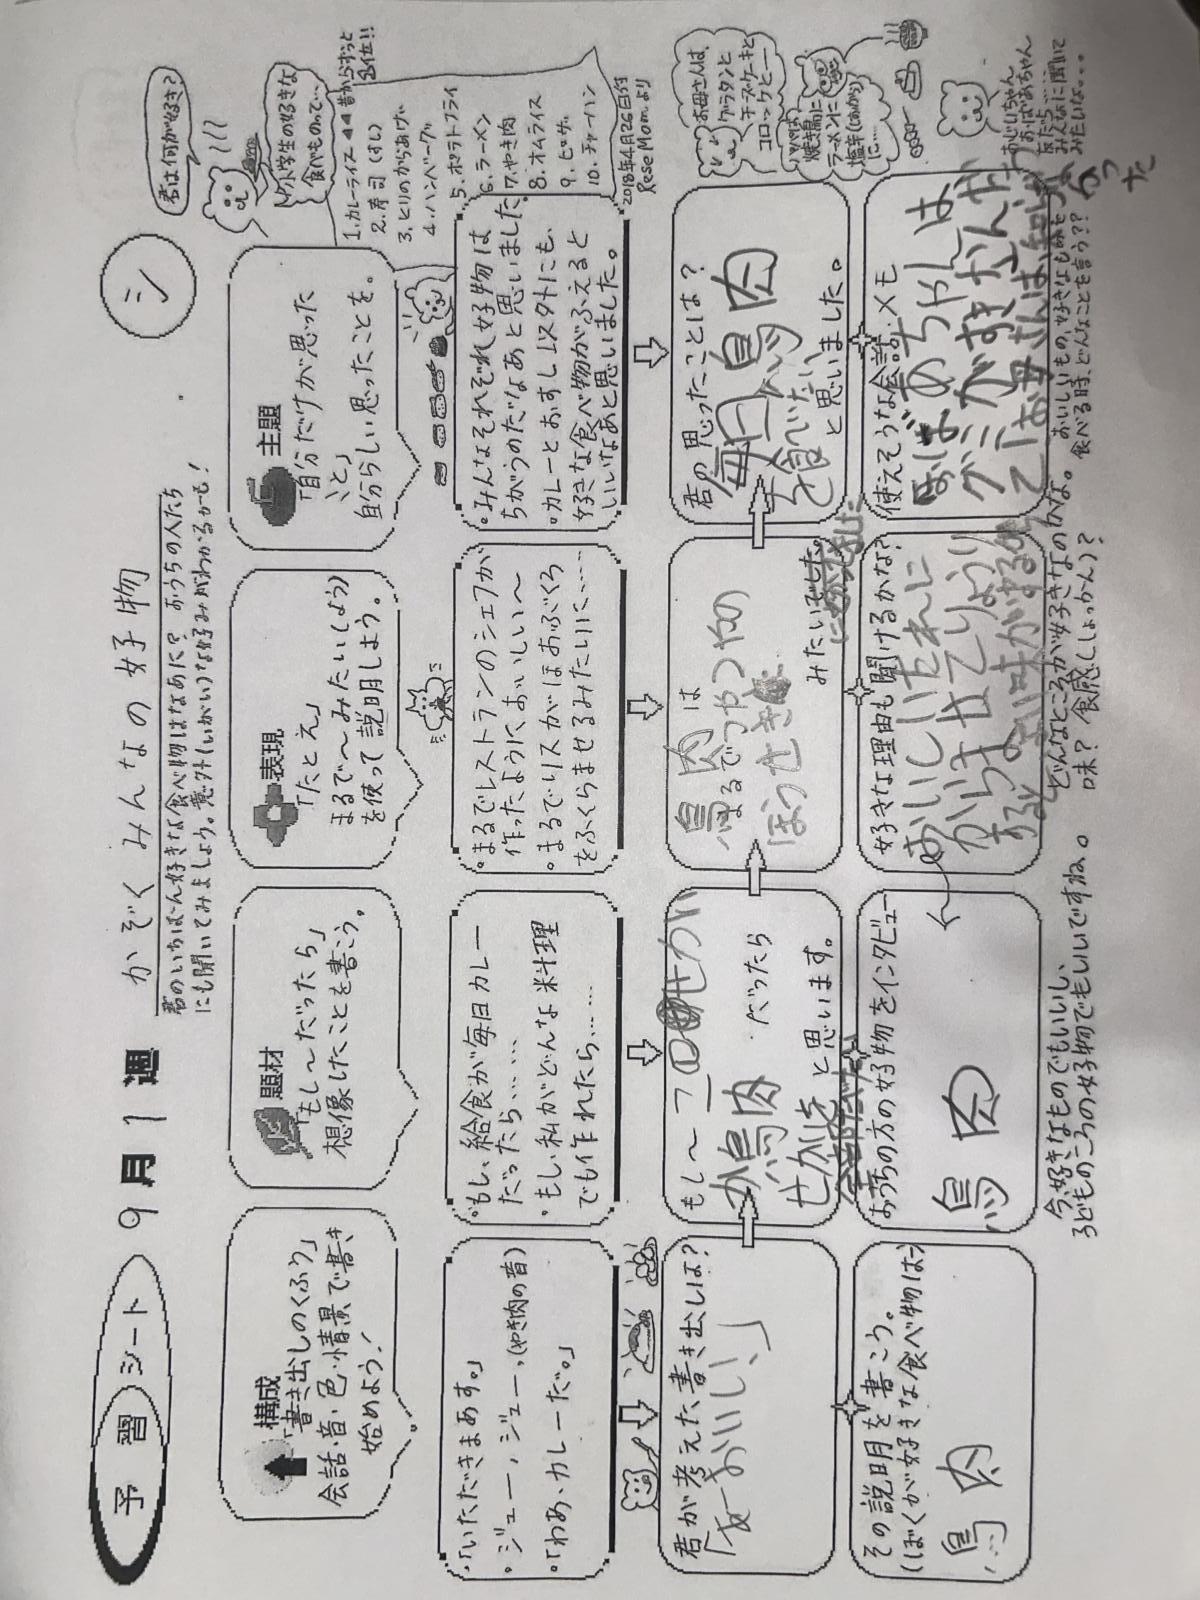 予習シート 9月1週 かぞくみんなの好物
君のいちばん好きな食べ物はなあに？ おうちの人たち
にも聞いてみましょう。意外(いがい)な好みがわかるかも！
シ
君は何が好き？
小学生の好きな
食べものって…
1.カレーライス ◀◀ 昔からずっと
1位!!
2.寿司(すし)
3.とりのからあげ
4.ハンバーグ
5.ポテトフライ
6.ラーメン
7.やき肉
8.オムライス
9.ピザ
10.チャーハン
2018年4月26日付
Rese Momより
構成
「書き出しのくふう」
会話・音・色・情景で書き
始めよう！
題材
「もし〜だったら」
想像したことを書こう。
表現
「たとえ」
まるで〜みたい(よう)
を使って説明しよう。
主題
「自分だけが思った
こと」
自分らしい思ったことを。
・「いただきまあす。」
・ジュー、ジュー、(やき肉の音)
・「わあ、カレーだ。」
・もし、給食が毎日カレー
だったら……
・もし、私がどんな料理
でも作れたら……
・まるでレストランのシェフが
作ったようにおいしい〜
・まるでリスがほおぶくろ
をふくらませるみたいに……
・みんなそれぞれ好物は
ちがうのだなあと思いました
・カレーとおすし以外にも、
好きな食べ物がふえると
いいなあと思いました。
君が考えた書き出しは？
「あーおいしい、」
もし〜
せかい
が鳥肉
だったら
せかいを
全部たべた
と思います。
鳥肉は
まるでつやつやの
ほうせき
みたいでした。
君の思ったことは？
毎日鳥肉
を食べたい
と思いました。
お母さんは、
グラタンと
チーズケーキと
コロッケと…
パパは、
焼き鳥に
ラーメンに
塩辛(しおから)
に…
おじいちゃん
おばあちゃん
友だち……
みんなに聞いて
みたいな…
その説明を書こう。
(ぼくが好きな食べ物は〜)
鳥肉
おうちの方の好物をインタビュー
鳥肉
好きな理由も聞けるかな？
おいしいたれに
からませてりょうり
するといい味がするの
使えそうな会話。メモ
おばあちゃんは
グミがすきなんだ
って「お母さんは知らな
かった
今、好きなものでもいいし、
子どものころの好物でもいいですね。
どんなところが好きなのかな。
味？ 食感(しょっかん)？
おいしいもの、好きなものを
食べる時、どんなことを言う？？